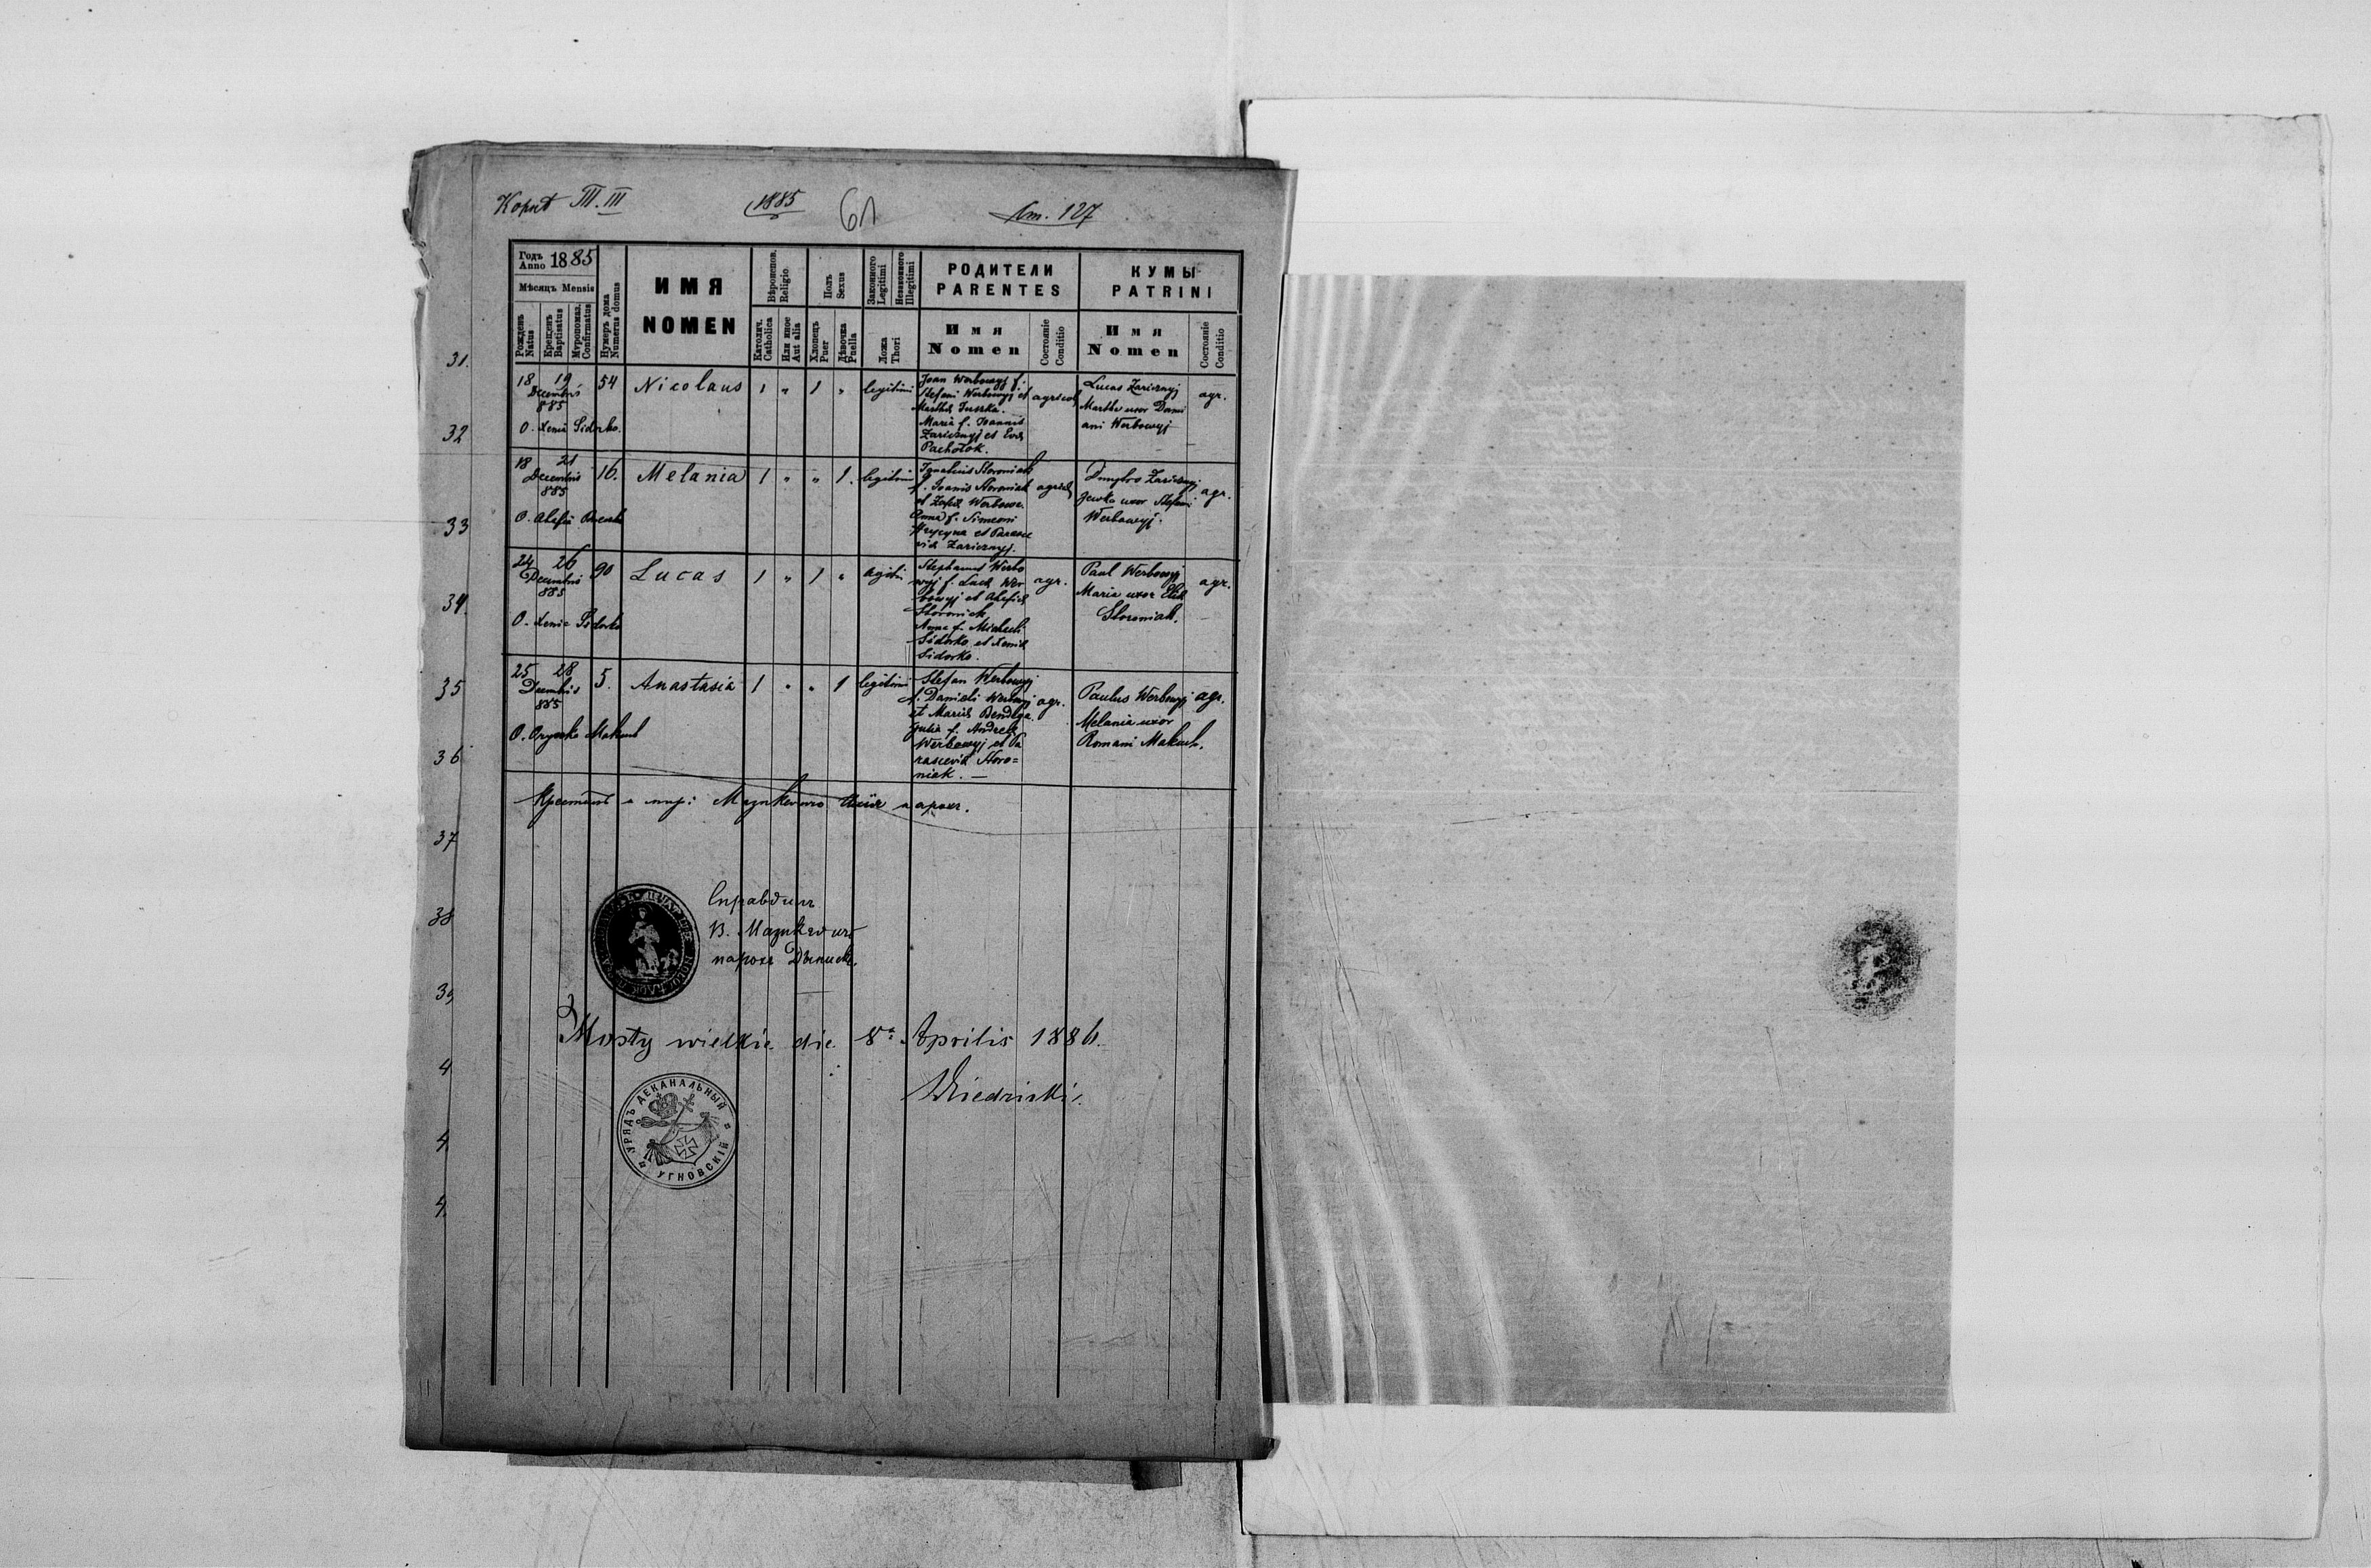 Копія Т. III
1885
61
Ст. 127
Годъ Anno 1885
Мѣсяцъ Mensis
Рожденъ Natus
Крещенъ Baptisatus
Мѵропомаз. Confirmatus
Нумеръ дома Numerus domus
ИМЯ
NOMEN
Вѣроисповѣд. Religio
Католич. Catholica
Или иное Aut alia
Полъ Sexus
Хлопецъ Puer
Дѣвочка Puella
Законного Legitimi
Незаконного Illegitimi
Ложа Thori
РОДИТЕЛИ
PARENTES
Имя
Nomen
Состояніе Conditio
КУМЫ
PATRINI
Имя
Nomen
Состояніе Conditio
31.
32
33
34.
35
36
37
38
39
4
4
4.
18 19 Decembris 885
O. Xenia Sidorko.
54 Nicolaus 1 " 1 " legitimi
Joan Werbowyj f.
Stefani Werbowyj et
Martha Juszka.
Maria f. Joannis
Zaricznyj et Eva
Pachołok.
agricola
Lucas Zaricznyj
Martha uxor Dami
ani Werbowyj
agr.
18 21 Decembris 885
O. Ahafia
16. Melania 1 " " 1. legitimi
Ignatius Storoniak
f. Joanis Storoniak
et Zofia Werbowa.
Anna f. Simeoni
Hrycyna et Parasce
via Zaricznyj.
agricola
Dmytro Zaricznyj
Jewka uxor Stefani
Werbowyj.
agr.
24 26 Decembris 885
O. Xenia Sidorko
90 Lucas 1 " 1 " legitimi
Stephanus Werbo
wyj f. Luca Wer
bowyj et Ahafia
Storoniak
Anna f. Michaeli
Sidorko et Xenia
Sidorko.
agr.
Paul Werbowyj
Maria uxor Elia
Storoniak.
agr.
25 28 Decembris 885
O. Oryszka Makuch
5. Anastasia 1 " " 1 legitimi
Stefan Werbowyj
f. Danieli Werbowyj
et Maria Bendyga.
Julia f. Andrea
Werbowyj et Pa
rascevia Storo=
niak. —
agr.
Paulus Werbowyj
Melania uxor
Romani Makuch.
agr.
Крестилъ и мир: Мазикевичъ парохъ.
Справдилъ
В. Мазикевичъ
парохъ Дыниска.
Mosty wielkie die 8a Aprilis 1886.
УРЯДЪ ДЕКАНАЛЬНЫЙ
УГНОВСКІЙ